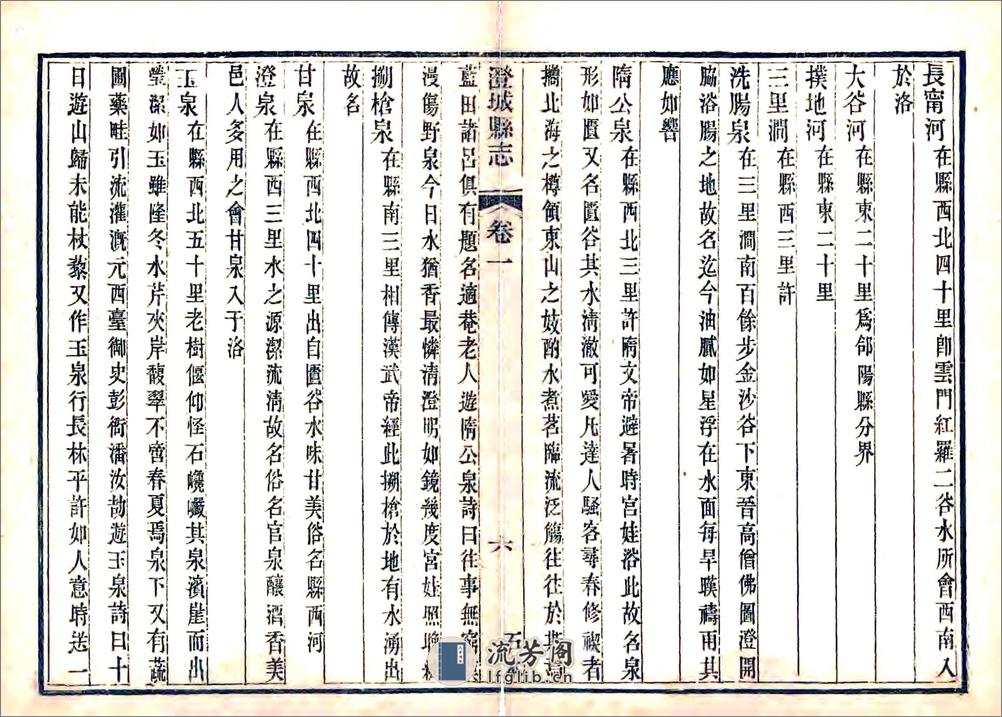 長甯河在縣西北四十里卽雲門紅羅二谷水所會西南入
於洛
大谷河在縣東二十里爲郃陽縣分界
撲地河在縣東二十里
三里澗在縣西三里許
洗腸泉在三里澗南百餘步金沙谷下東晉高僧佛圖澄開
脇浴腸之地故名迄今油膩如星浮在水面每旱暵禱雨其
應如響
隋公泉在縣西北三里許隋文帝避暑時宮娃浴此故名泉
形如匱又名匱谷其水淸澈可愛凡達人騷客尋春修禊者
攜北海之樽領東山之妓酌水煮茗臨流泛觴往往於
澄城縣志
卷一
六
藍田諸呂俱有題名適菴老人遊隋公泉詩曰往事無窮
漫傷野泉今日水猶香最憐清澄明如鏡幾度宮娃照
搠槍泉在縣南三里相傳漢武帝經此搠槍於地有水湧出
故名
甘泉在縣西北四十里出自匱谷水味甘美俗名縣西河
澄泉在縣西三里水之源潔流淸故名俗名官泉釀酒香美
邑人多用之會甘泉入于洛
玉泉在縣西北五十里老樹偃仰怪石巉巘其泉濱崖而出
瑩潔如玉雖隆冬水芹夾岸馥翠不啻春夏焉泉下又有蔬
圃藥畦引流灌溉元西臺御史彭衙潘汝劼遊玉泉詩曰十
日遊山歸未能杖藜又作玉泉行長林平許如人意時送一
流芳阁
lfglib.cn